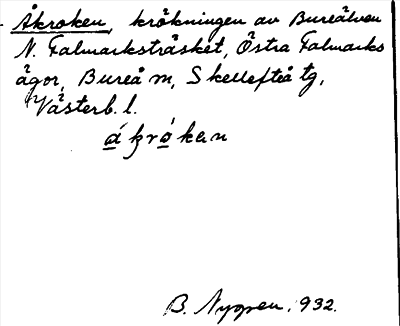 Åkroken, krökningen av Bureälven
N. Falmarksträsket, Östra Falmarks
ägor, Bureå m, Skellefteå tg,
Västerb. l.
B. Nygren, 932.